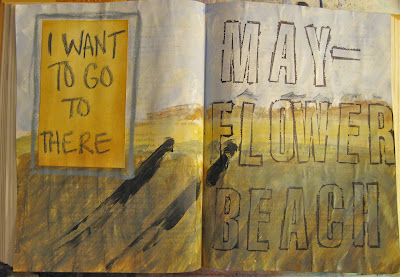 I WANT
TO GO
TO
THERE
MAY-
FLOWER
BEACH